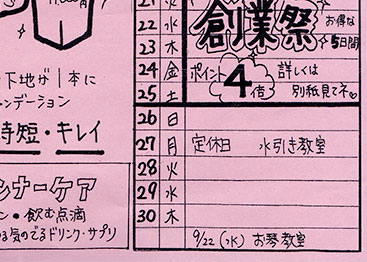 1,000円
下地が1本に
ンデーション
時短・キレイ
ンナーケア
ン・飲む点滴
る気のでるドリンク・サプリ
21 火
22 水
23 木
24 金
25 土
創業祭
お得な
5日間
ポイント4倍
詳しくは
別紙見てネ♡
26 日
27 月 定休日 水引き教室
28 火
29 水
30 木
9/22(水) お琴教室